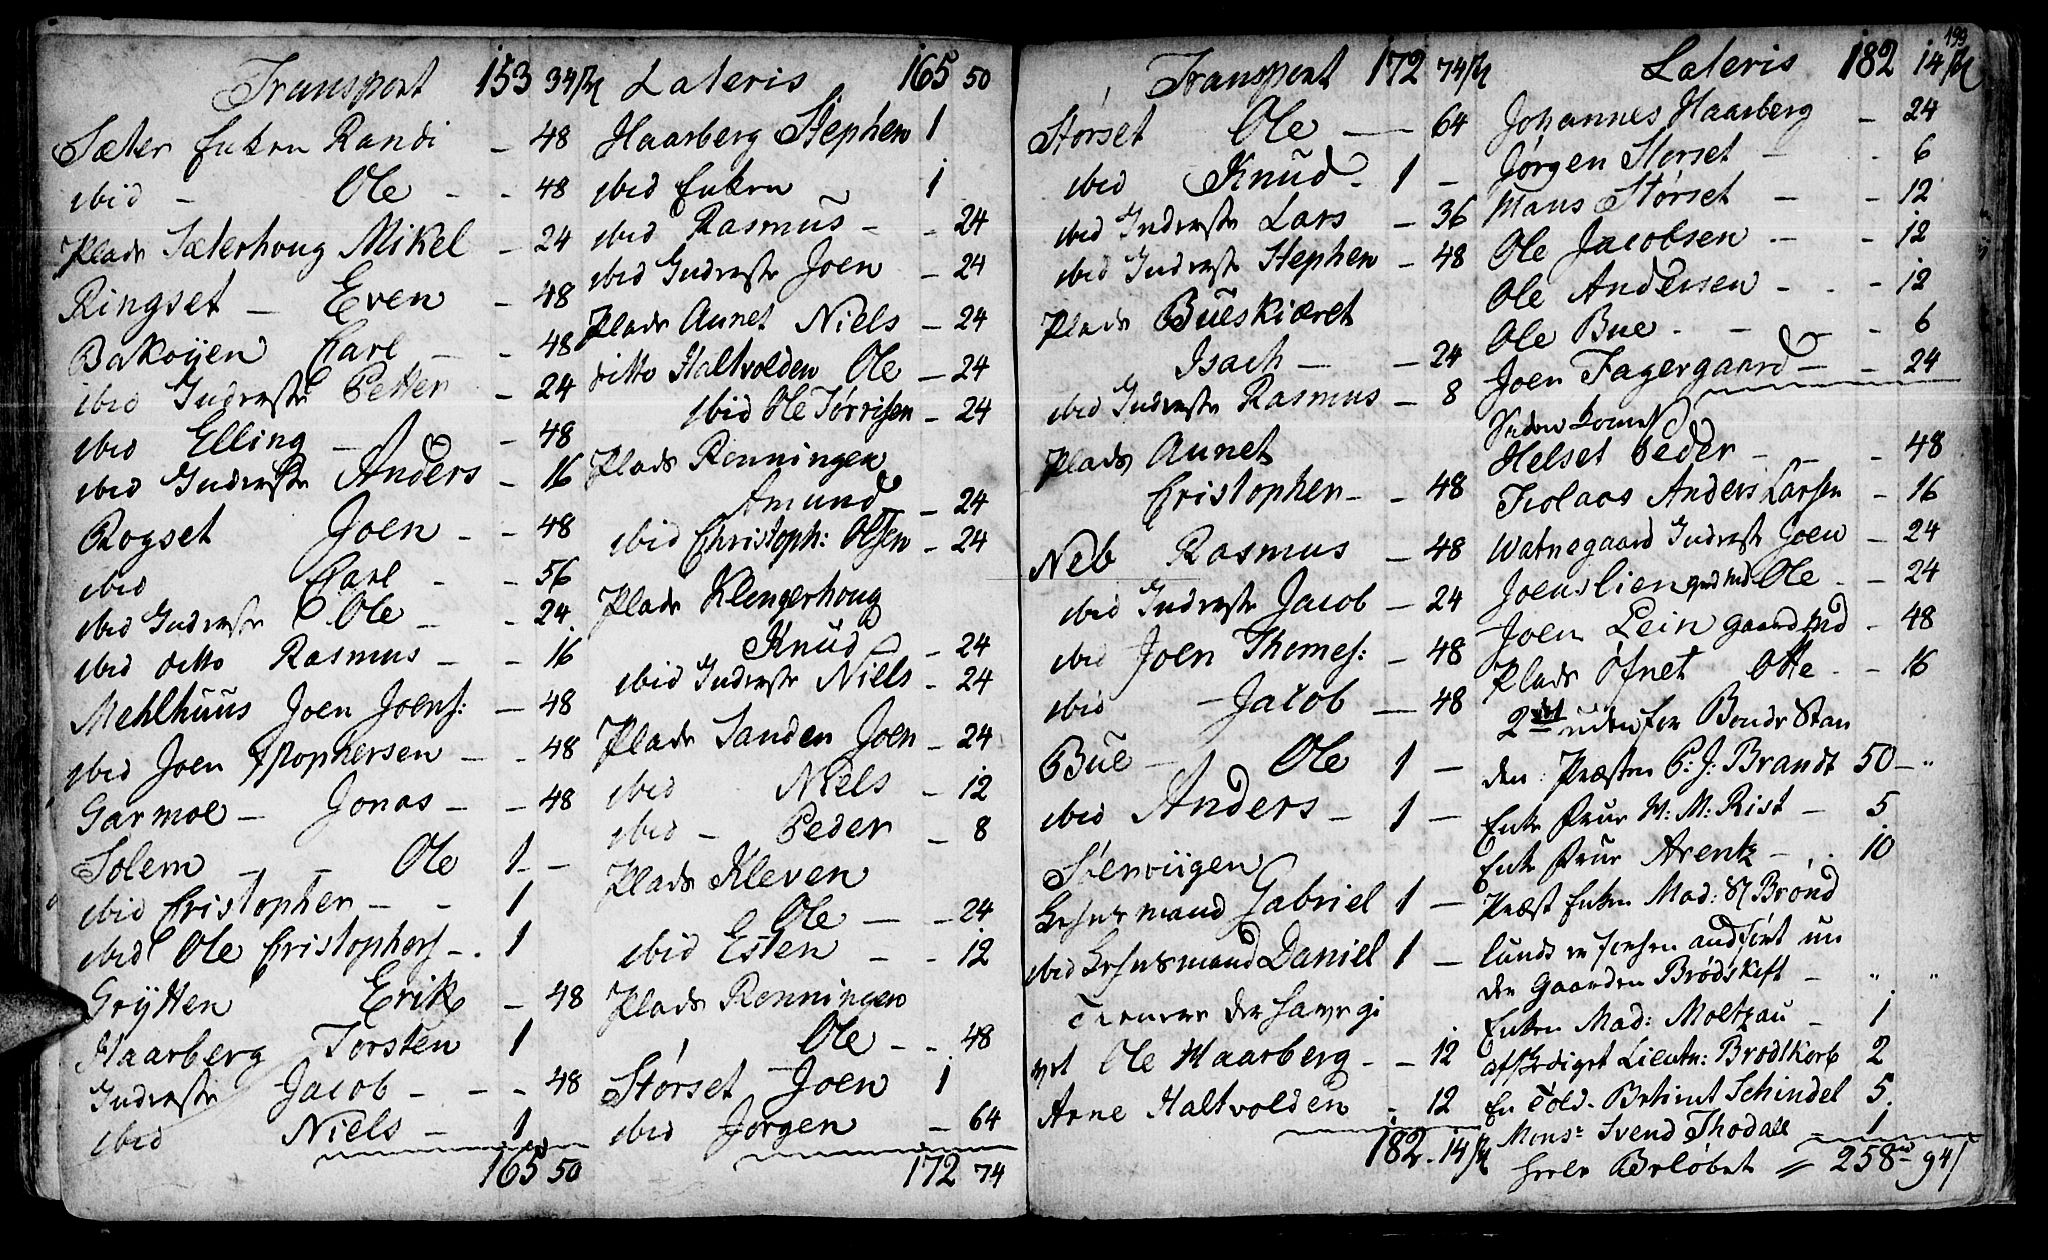 Transport 153 34 ſk
Sæter Enken Randi - 48
ibid - Ole - - 48
Plads Sæterhoug Mikel - 24
Ringset - Even - 48
Bakøyen Carl - - 48
ibid Inderste Petter - 24
ibid Elling - - 48
ibid Inderste Anders - 16
Rogset Joen - - 48
ibid Carl - - 56
ibid Inderste Ole - - 24
ibid ditto Rasmus - - 16
Mehlhuus Joen Joens: - 48
ibid Joen Xstophersen - - 48
Garmoe - Jonas - - 48
Solem - - Ole 1 -
ibid Cristopher - - 1
ibid Ole Cristophers - 1
Grytten Erik - 48
Haarberg Torsten 1
Inderste Jacob - - - 48
ibid Niels - 1
165 50
Lateris 165 50
Haarberg Stephen 1
ibid Enken - 1
ibid Rasmus - - 24
ibid Inderste Joen - 24
Plads Aunet Niels - 24
ditto Haltvolden Ole - 24
ibid Ole Tørrisen - 24
Plads Rønningen
Amund - 24
ibid Christoph: Olsen - 24
Plads Klengerhoug
Knud - 24
ibid Inderste Niels - 24
Plads Sanden Joen - 24
ibid Niels - 12
ibid - Peder - 8
Plads Kleven
Ole - - 24
ibid Esten - - 12
Plads Rønningen
Ole - - 48
Størset Joen 1
ibid Jørgen - 64
172 74
Transport 172 74 ſk
Størset Ole - 64
ibid Knud - 1 -
ibid Inderste Lars - 36
ibid Inderste Stephen - 48
Plads Bueskiæret
Isach - - 24
ibid Inderste Rasmus - 8
Plads Aunet
Cristopher - - 48
Neb Rasmus - 48
ibid Inderste Jacob - 24
ibid Joen Thomes: - 48
ibid - Jacob - 48
Bue - Ole 1 -
ibid Anders - 1 -
Størviigen
Lehnsmand Gabriel 1 -
ibid Lehnsmand Daniel 1 -
Tienere der have gi
vet Ole Haarberg - - 12
Arne Haltvolden - 12
182 - 14 ſk
199
Lateris 182 14 ſk
Johannes Haarberg - 24
Jørgen Størset - - 6
Mans Størset - - 12
Ole Jacobsen - - 12
Ole Andersen - - - 12
Ole Bue - - - 6
Joen Fagergaard - - 24
Helset Peder - - - 48
Kolaas Anders Larsen - 16
Watnegaard Inderste Joen - 24
Joenslien Ole - - 24
Joen Lein - 48
Plads Øfnet Otte - - 16
2det uden for Bonde Stan
den: Præsten P: J: Brandt 50 - "
Enke Frue W: M: Rist - 5
Enke Frue Arentz - - 10
Præst Enken Mad: Sl Brønd
lunds er forhen andført un
der Gaarden Brødskift - " "
Enken Mad: Moltzau - 1
afskediget Lieutn: Brodtkorb 2
En Told-Betient Schindel 5
Monsr Svend Thodall - 1
heele Beløbet = 258 rd 94 ſ